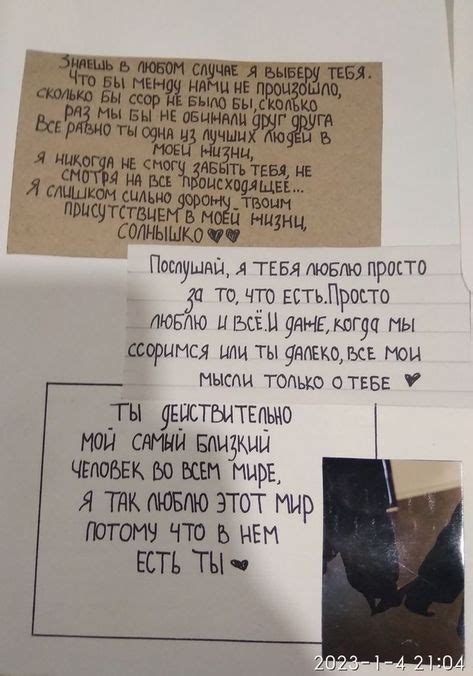 Знаешь в любом случае я выберу тебя.
Что бы между нами не произошло,
сколько бы ссор не было бы, сколько
раз мы бы не обинали друг друга
Все равно ты одна из лучших людей в
моей жизни,
я никогда не смогу забыть тебя, не
смотря на все происходящее...
Я слишком сильно дорожу твоим
присутствием в моей жизни,
солнышко
Послушай, я тебя люблю просто
за то, что есть. Просто
люблю и всё. И даже, когда мы
ссоримся или ты далеко, все мои
мысли только о тебе
Ты действительно
мой самый близкий
человек во всем мире,
я так люблю этот мир
потому что в нем
есть ты
2023-1-4 21:04